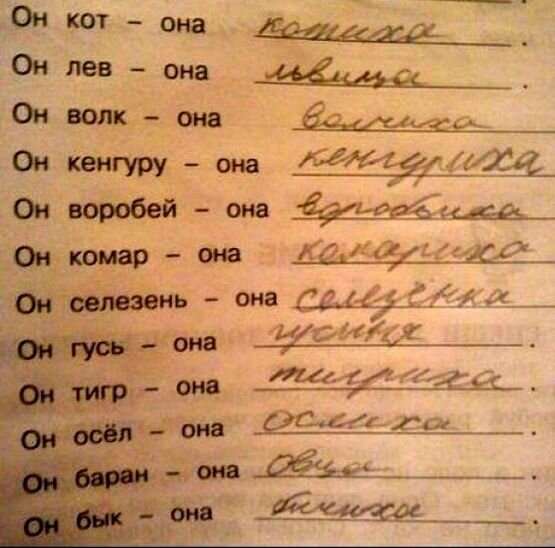 Он кот – она котиха.
Он лев – она львица.
Он волк – она волчиха.
Он кенгуру – она кенгуриха
Он воробей – она воробьиха
Он комар – она комариха
Он селезень – она селезёнка
Он гусь – она гусиня.
Он тигр – она тигриха.
Он осёл – она ослиха.
Он баран – она овца.
Он бык – она бичиха.